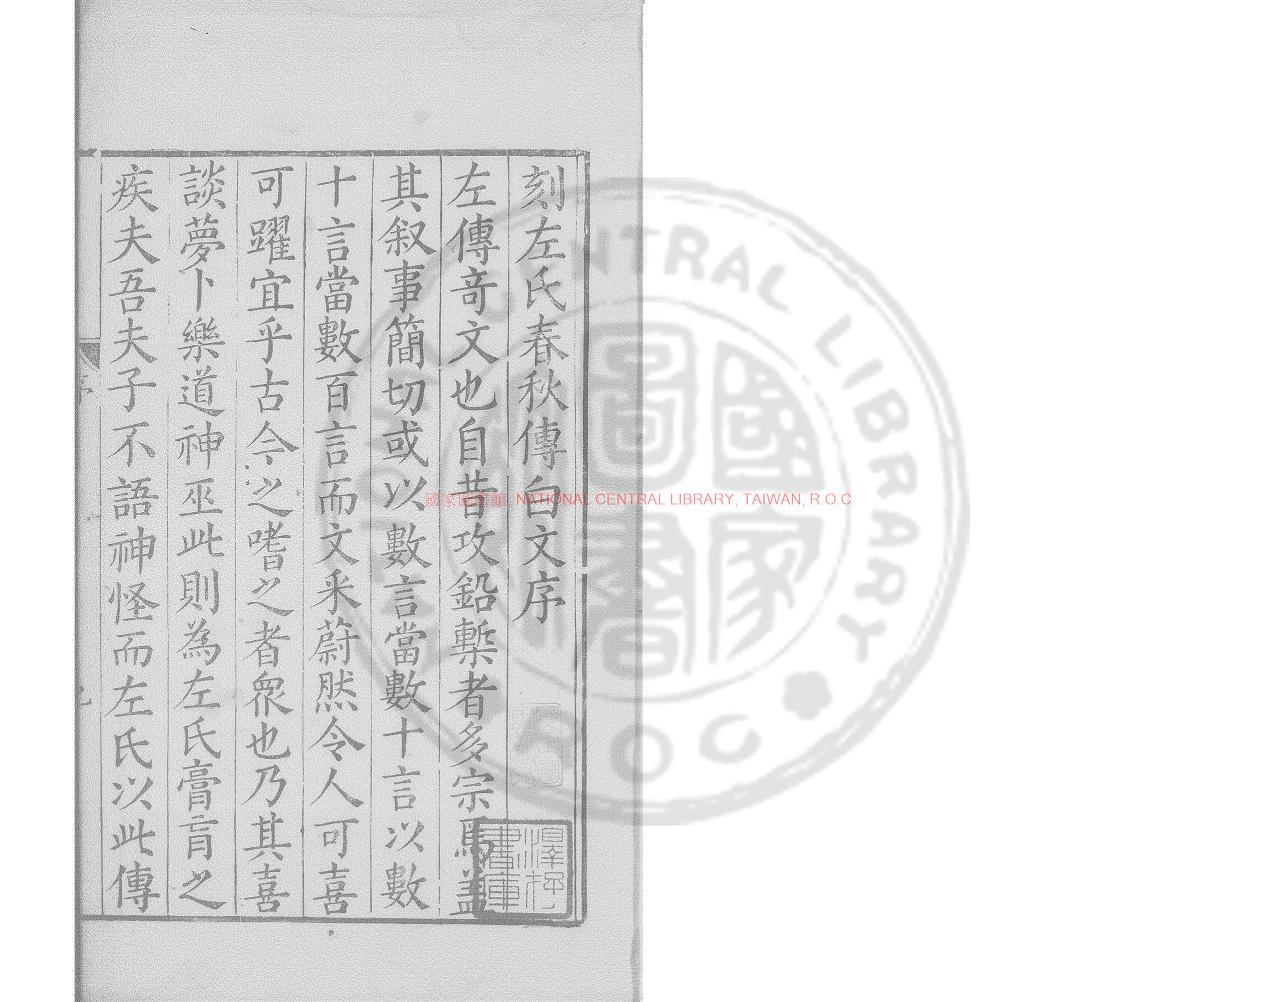 刻左氏春秋傳白文序
左傳奇文也自昔攻鉛槧者多宗焉蓋
其叙事簡切或以數言當數十言以數
十言當數百言而文釆蔚然令人可喜
可躍宜乎古今之嗜之者衆也乃其喜
談夢卜樂道神巫此則為左氏膏肓之
疾夫吾夫子不語神怪而左氏以此傳
序
澤存書庫
國家圖書館 NATIONAL CENTRAL LIBRARY, TAIWAN, R.O.C.
CENTRAL LIBRARY
ROC
國家圖書